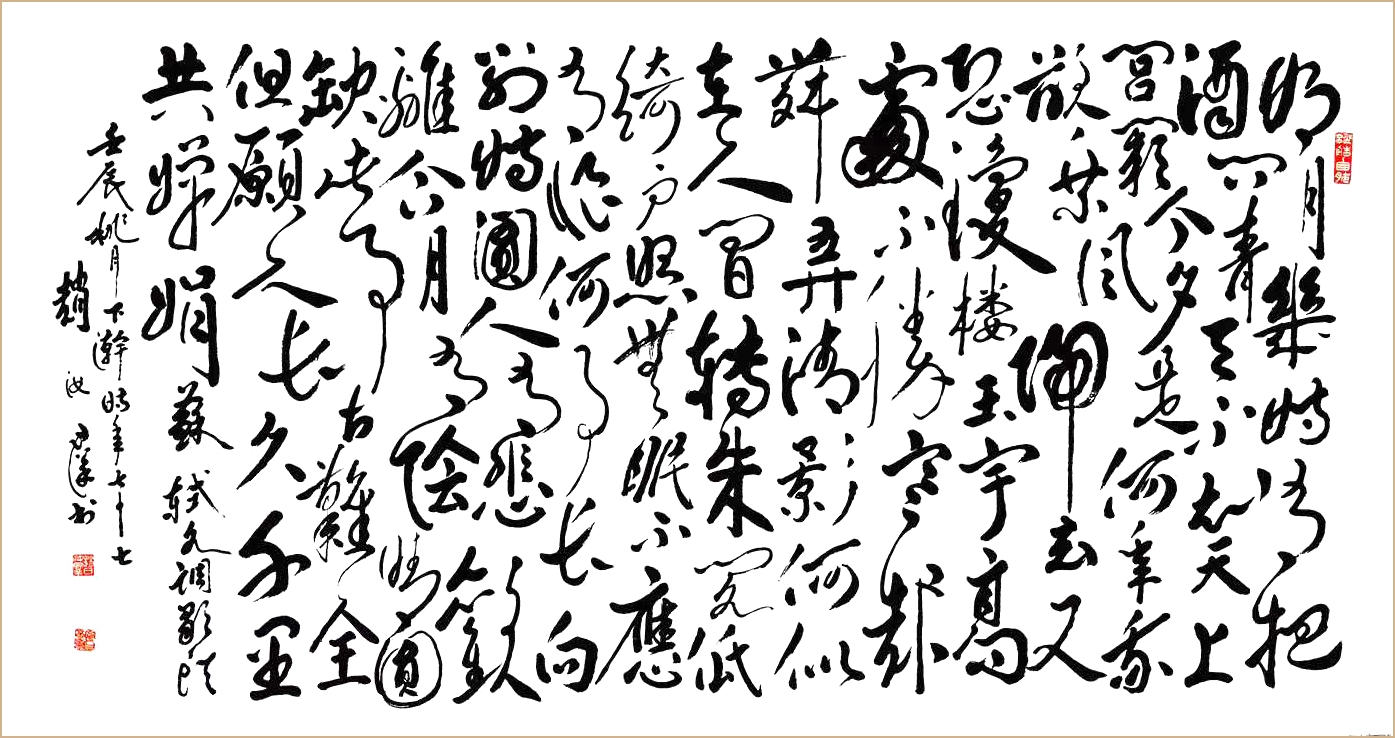 明月幾時有把
酒問青天不知天上
宮闕今夕是何年我
欲乘風歸去又
恐瓊楼玉宇高
處不勝寒起
舞弄清影何似
在人間轉朱閣低
綺户照無眠不應
有恨何事长向
别時圓人有悲歡
離合月有陰晴圓
缺此事古難全
但願人长久千里
共嬋娟 蘇軾水調歌頭
壬辰桃月下澣時年七十七
趙汝书